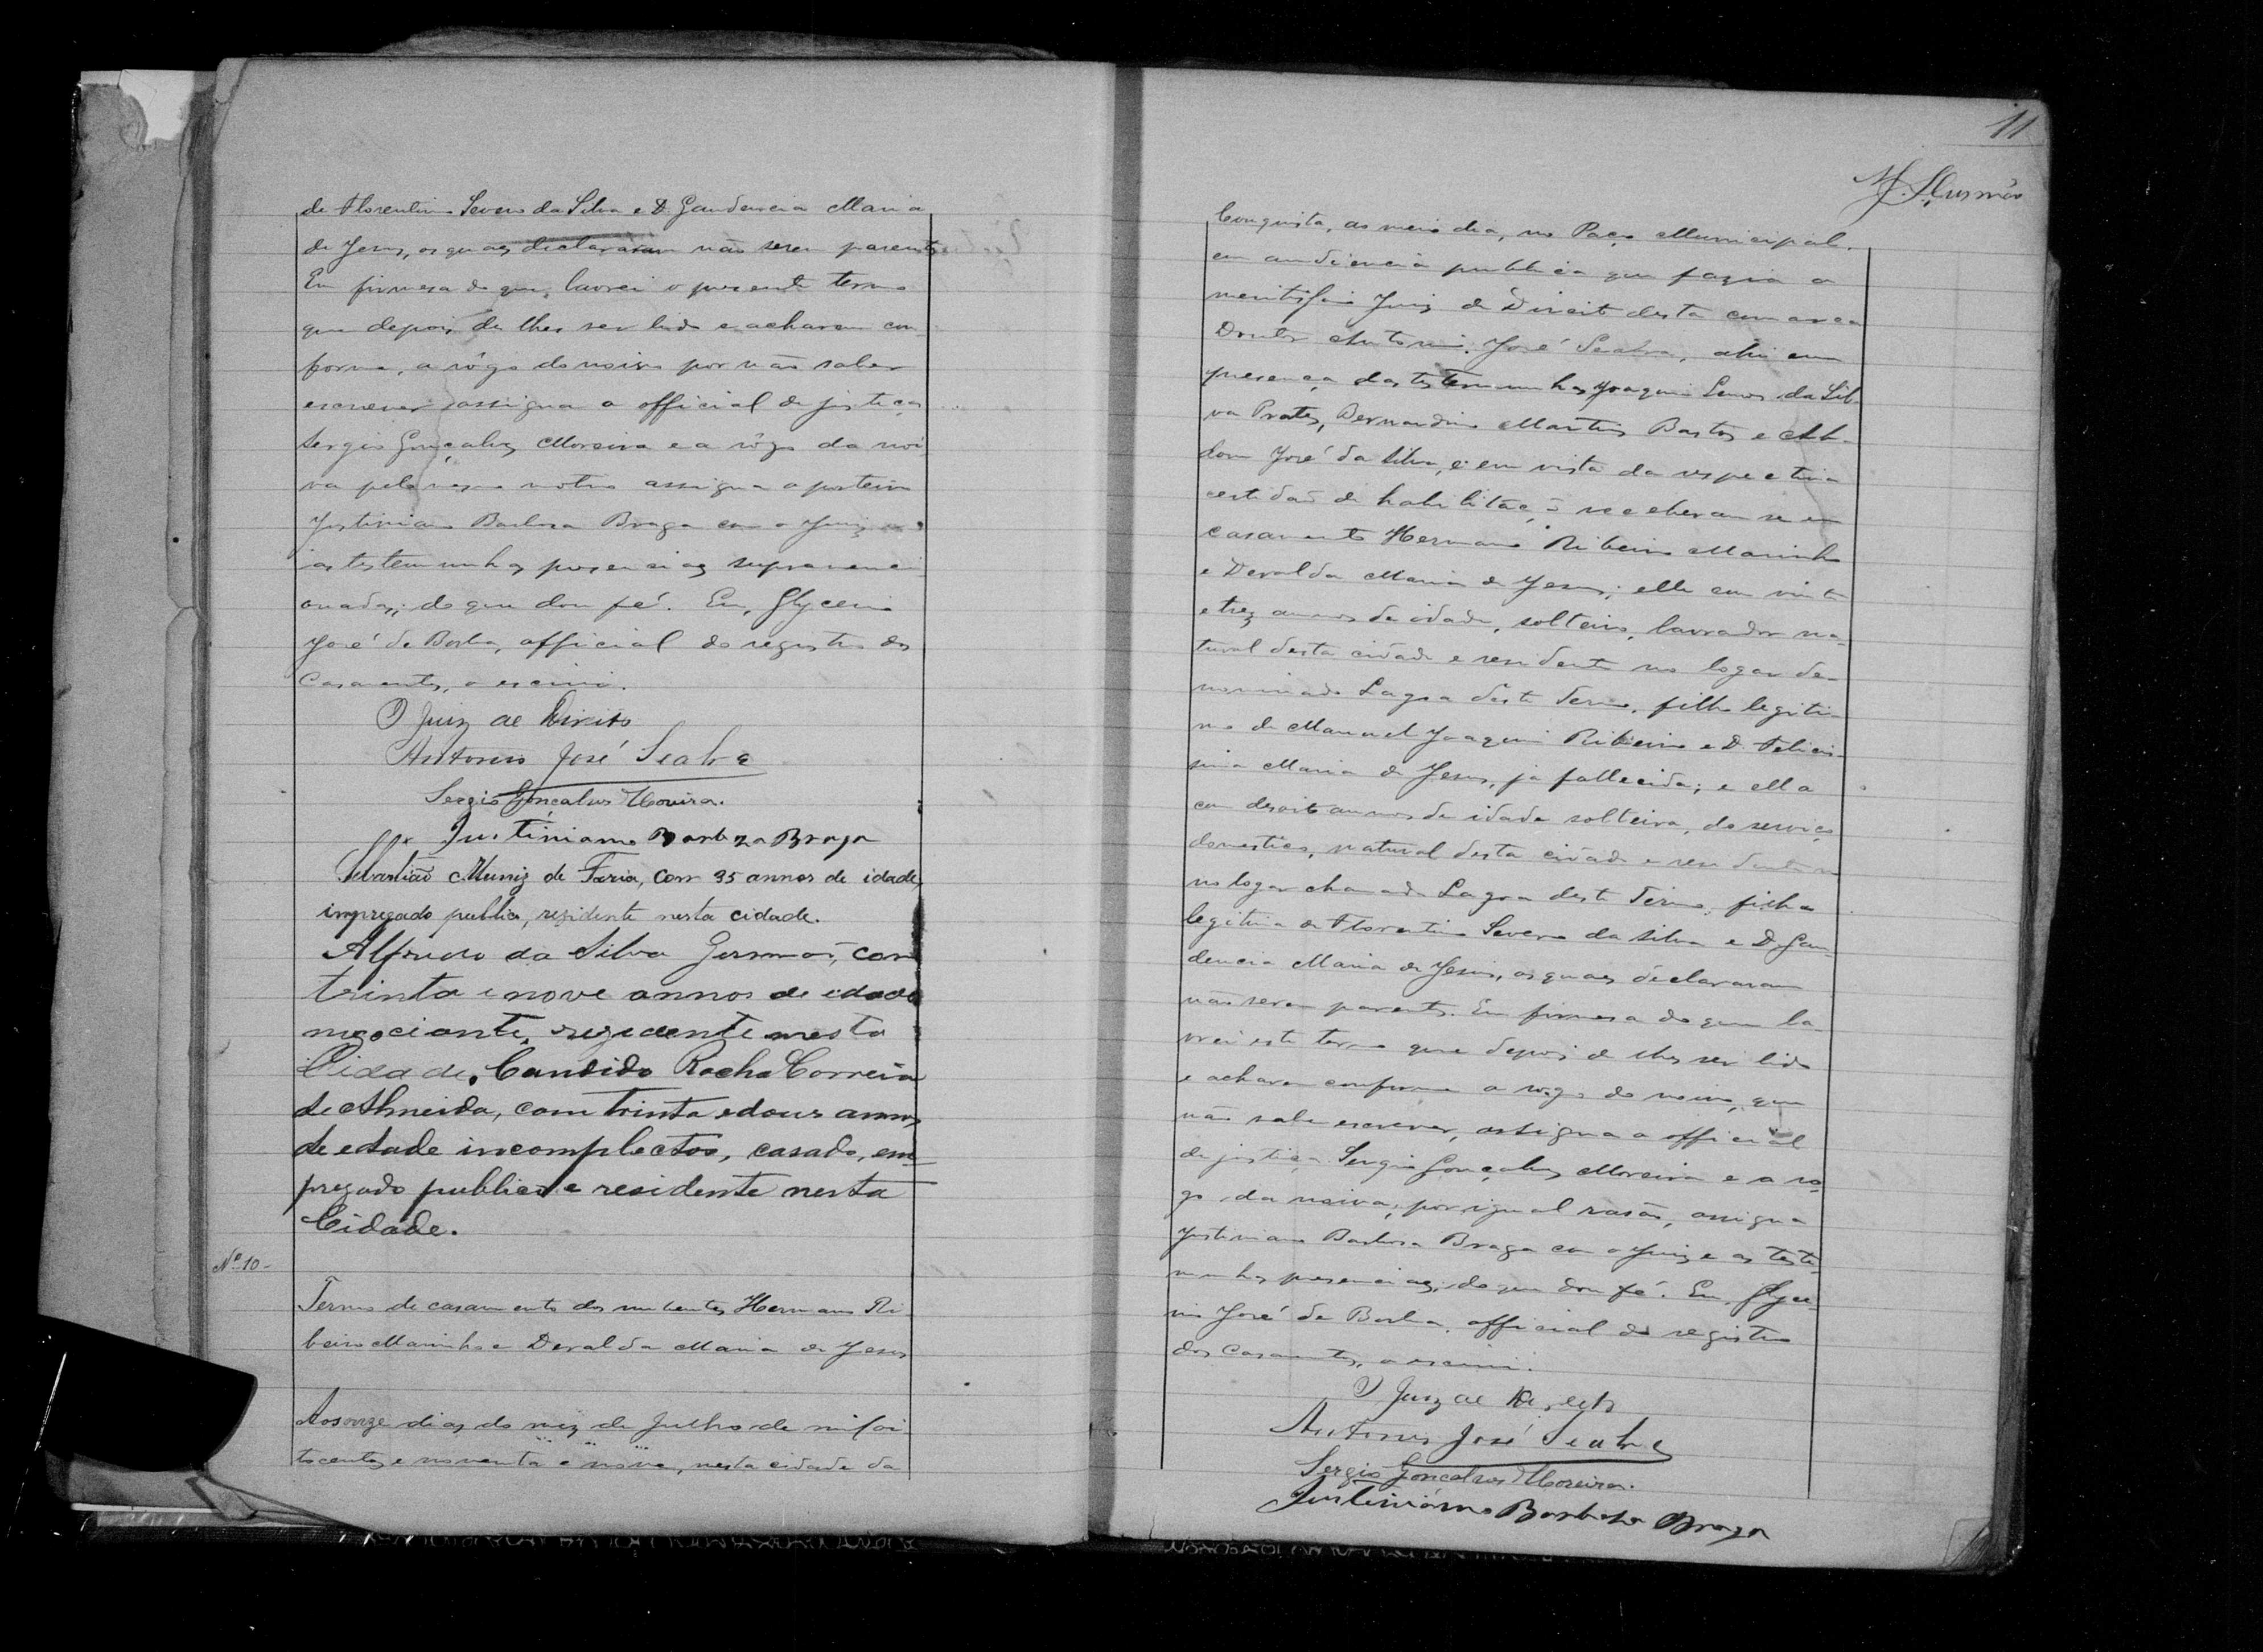 de Florentino Severo da Silva e D. Gaudencia Maria
de Jesus, os quaes declararam não serem parentes.
Em firmesa do que, lavrei o presente termo
que depois de lhes ser lido e acharem con-
forme, a rôgo do noivo por não saber
escrever assigna o official de justiça
Sergio Gonçalves Moreira e a rôgo da noi
va pelo mesmo motivo assigna o porteiro
Justiniano Barbosa Braga com o Juiz e
as testemunhas presenciaes supramenci
onadas; do que dou fé. Eu, Glycerio
José de Borba, official do registro dos
Casamentos, o escrevi.
O Juiz de Direito
Antonio José Seabra
Sergio Gonçalves Moreira.
Justiniano Barboza Braga
Sebastião Muniz de Faria, com 35 annos de idade,
impregado publico, rezidente nesta cidade.
Alfredo da Silva Gusmão, com
trinta e nove annos de idade
negociante, rezidente nesta
Cidade. Candido Rocha Correia
de Almeida, com trinta e dous annos
de edade incomplectos, casado, em-
pregado publico e residente nesta
Cidade.
Nº 10-
Termo de casamento dos nubentes Hermano Ri
beiro Marinho e Deralda Maria de Jesus
Aos onze dias do mez de Julho de mil oi
tocentos e noventa e nove, nesta cidade da
11
Gusmão
Conquista, as meio dia, no Paço Municipal.
em audiencia publica que fazia o
meritissimo Juiz de Direito desta comarca
Doutor Antonio José Seabra, ahi em
presença das testemunhas Joaquim Lemos da Sil-
va Prates, Bernardino Martins Bastos e Ab-
don José da Silva, e em vista da respectiva
certidão de habilitação receberam se em
casamento Hermano Ribeiro Marinho
e Deralda Maria de Jesus; elle com vinte
e trez annos de idade, solteiro, lavrador na-
tural desta cidade e residente no logar de-
nominado Lagoa deste Termo, filho legiti-
mo de Manuel Joaquim Ribeiro e D. Felicis-
sima Maria de Jesus, já fallecida; e ella
com desoito annos de idade solteira, do serviço
domestico, natural desta cidade e residente
no logar chamado Lagoa deste Termo, filha
legitima de Florentino Severo da Silva e D. Gau-
dencia Maria de Jesus, os quaes declararam
não serem parentes. Em firmesa do que la-
vrei este termo que depois de lhes ser lido
e acharem conforme a rogo do noivo, que
não sabe escrever, assigna o official
de justiça Sergio Gonçalves Moreira e a ro-
go da noiva, por igual rasão, assigna
Justiniano Barbosa Braga com o Juiz e as teste-
munhas presenciaes, do que dou fé. Eu, Glyce-
rio José de Borba, official do registro
dos Casamentos, o escrevi.
O Juiz de Direito
Antonio José Seabra
Sergio Gonçalves Moreira.
Justiniano Barboza Braga